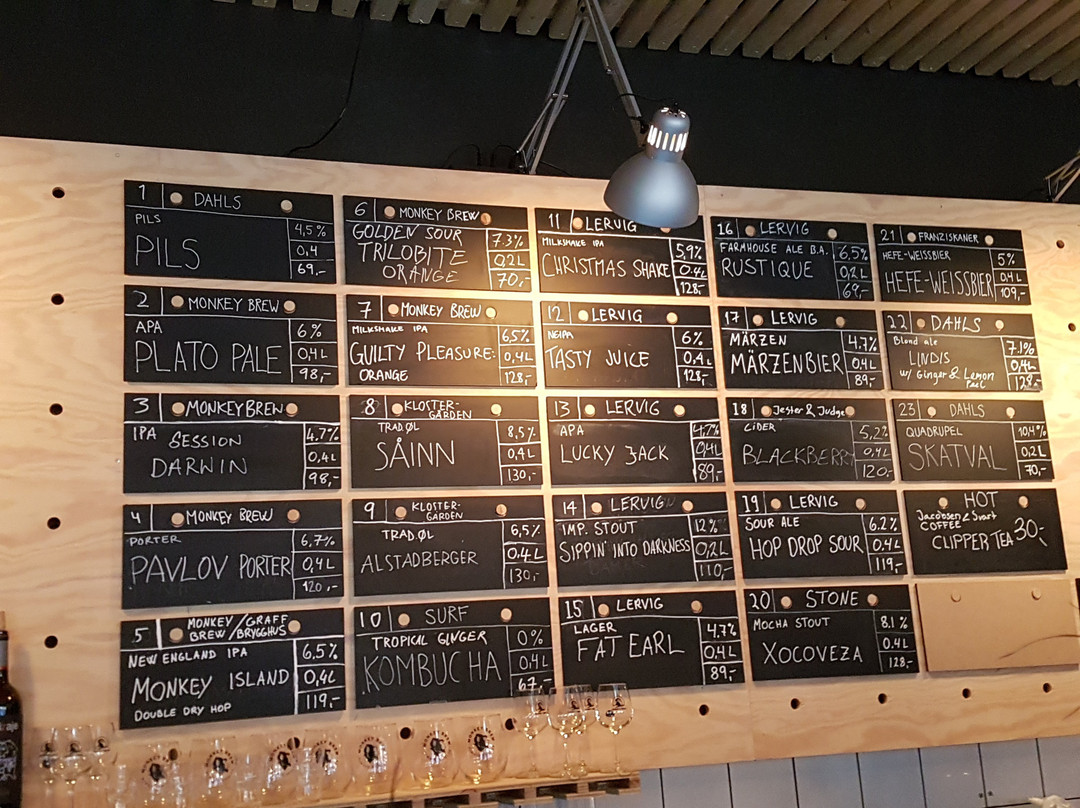 1 DAHLS
PILS
PILS
4,5%
0,4
69,-
2 MONKEY BREW
APA
PLATO PALE
6%
0,4L
98,-
3 MONKEY BREW
IPA
SESSION
DARWIN
4.7%
0,4L
98,-
4 MONKEY BREW
PORTER
PAVLOV PORTER
6,7%
0,4L
120,-
5 MONKEY/GRAFF
BREW/BRYGGHUS
NEW ENGLAND IPA
MONKEY ISLAND
DOUBLE DRY HOP
6.5%
0,4L
119,-
6 MONKEY BREW
GOLDEN SOUR
TRILOBITE
ORANGE
7.3%
0,2L
70,-
7 MONKEY BREW
MILKSHAKE IPA
GUILTY PLEASURE:
ORANGE
6,5%
0,4L
128,-
8 KLOSTER-
GÅRDEN
TRAD.ØL
SÅINN
8,5%
0,4L
130,-
9 KLOSTER-
GÅRDEN
TRAD.ØL
ALSTADBERGER
6,5%
0.4L
130,-
10 SURF
TROPICAL GINGER
KOMBUCHA
0%
0,4L
67,-
11 LERVIG
MILKSHAKE IPA
CHRISTMAS SHAKE
5,9%
0.4L
128,-
12 LERVIG
NEIPA
TASTY JUICE
6%
0.4L
128,-
13 LERVIG
APA
LUCKY JACK
4,7%
0,4L
89,-
14 LERVIG
IMP. STOUT
SIPPIN' INTO DARKNESS
12%
0,2L
110,-
15 LERVIG
LAGER
FAT EARL
4.7%
0,4L
89,-
16 LERVIG
FARMHOUSE ALE B.A.
RUSTIQUE
6,5%
0,2L
69,-
17 LERVIG
MÄRZEN
MÄRZENBIER
4.7%
0.4L
89,-
18 Jester & Judge
CIDER
BLACKBERRY
5,2%
0,4L
120,-
19 LERVIG
SOUR ALE
HOP DROP SOUR
6.2%
0.4L
119,-
20 STONE
MOCHA STOUT
XOCOVEZA
8.1%
0.4L
128,-
21 FRANZISKANER
HEFE-WEISSBIER
HEFE-WEISSBIER
5%
0,4L
109,-
22 DAHLS
Blond ale
LINDIS
w/ Ginger & Lemon
Peel
7.1%
0,4L
128,-
23 DAHLS
QUADRUPEL
SKATVAL
10,4%
0.2L
70,-
HOT
Jacobsen & Svart
COFFEE
CLIPPER TEA
30,-